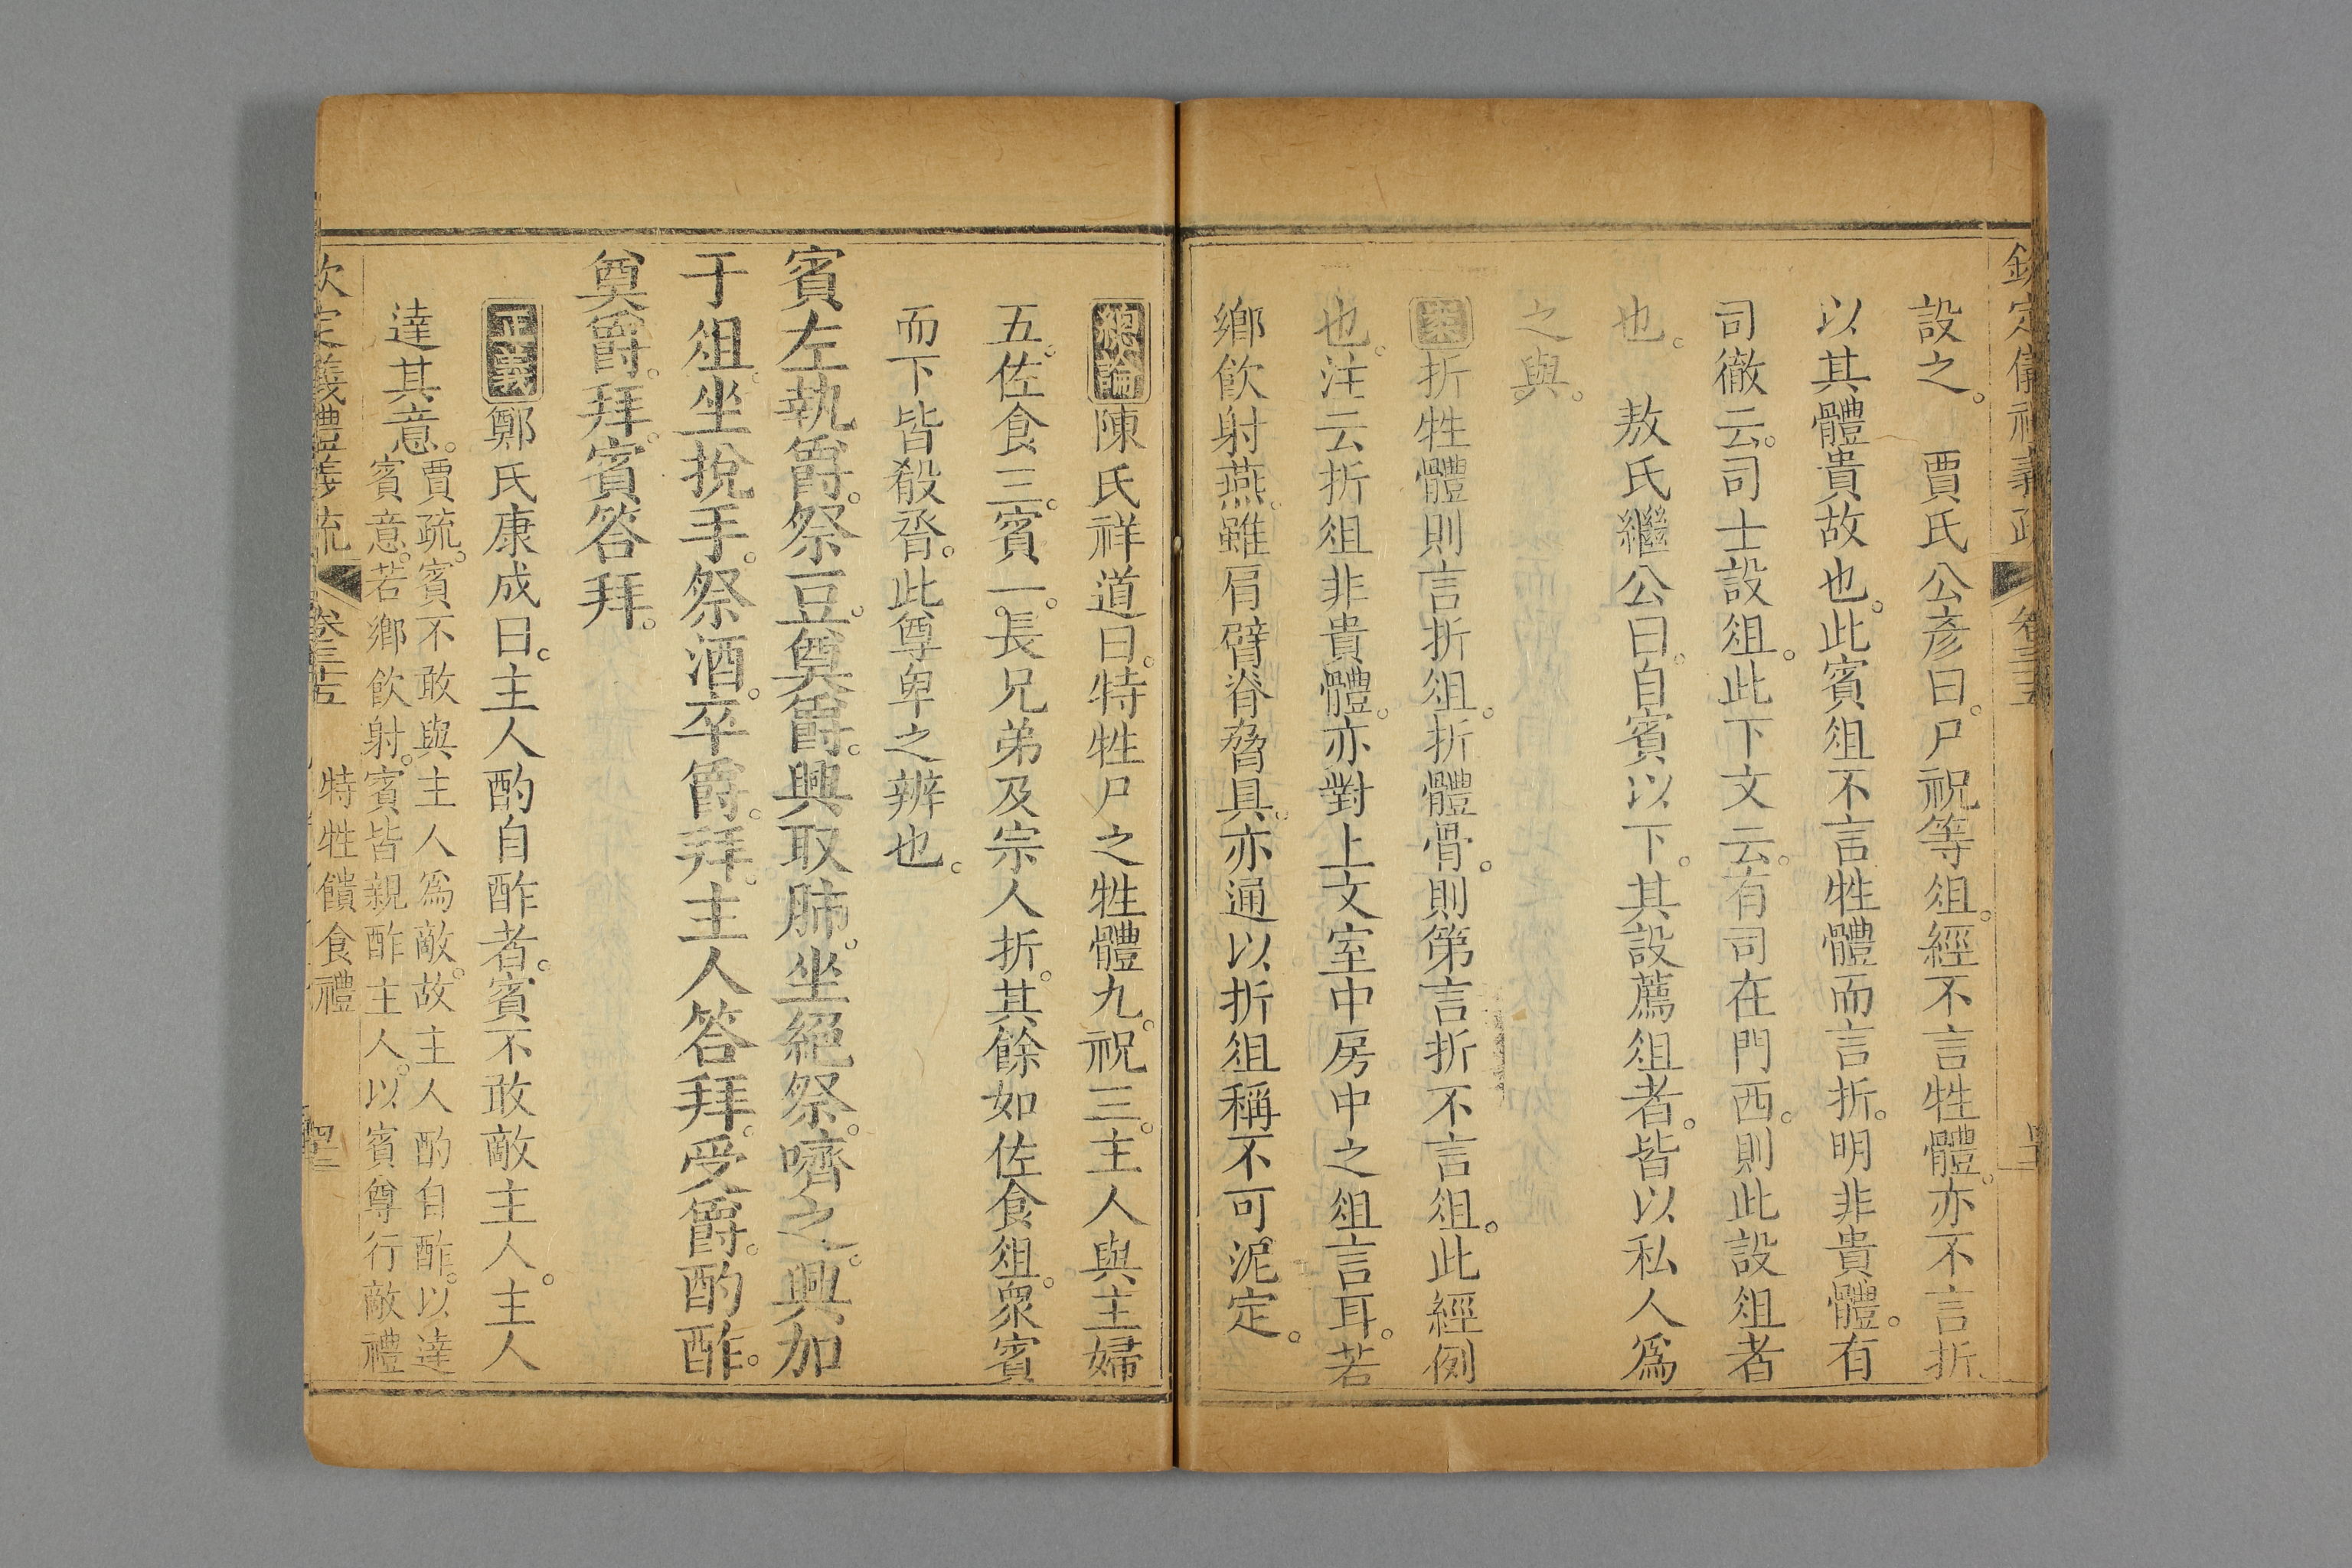 設之。　賈氏公彥曰。尸祝等俎。經不言牲體。亦不言折
以其體貴故也。此賓俎不言牲體而言折。明非貴體。有
司徹云。司士設俎。此下文云。有司在門西。則此設俎者
也。　敖氏繼公曰。自賓以下。其設薦俎者。皆以私人爲
之與。
案折牲體則言折俎。折體骨。則第言折不言俎。此經例
也。注云折俎非貴體。亦對上文室中房中之俎言耳。若
鄉飲射燕。雖肩臂脊脅具。亦通以折俎稱。不可泥定。
總論陳氏祥道曰。特牲尸之牲體九。祝三。主人與主婦
五。佐食三。賓一。長兄弟及宗人折。其餘如佐食俎。衆賓
而下皆殽脀。此尊卑之辨也。
賓左執爵。祭豆。奠爵。興取肺。坐絕祭。嚌之。興加
于俎。坐挩手。祭酒。卒爵。拜。主人答拜。受爵。酌酢。
奠爵。拜。賓答拜。
正義鄭氏康成曰。主人酌自酢者。賓不敢敵主人。主人
達其意。賈疏。賓不敢與主人爲敵。故主人酌自酢。以達
賓意。若鄉飲射。賓皆親酢主人。以賓尊行敵禮
特牲饋食禮